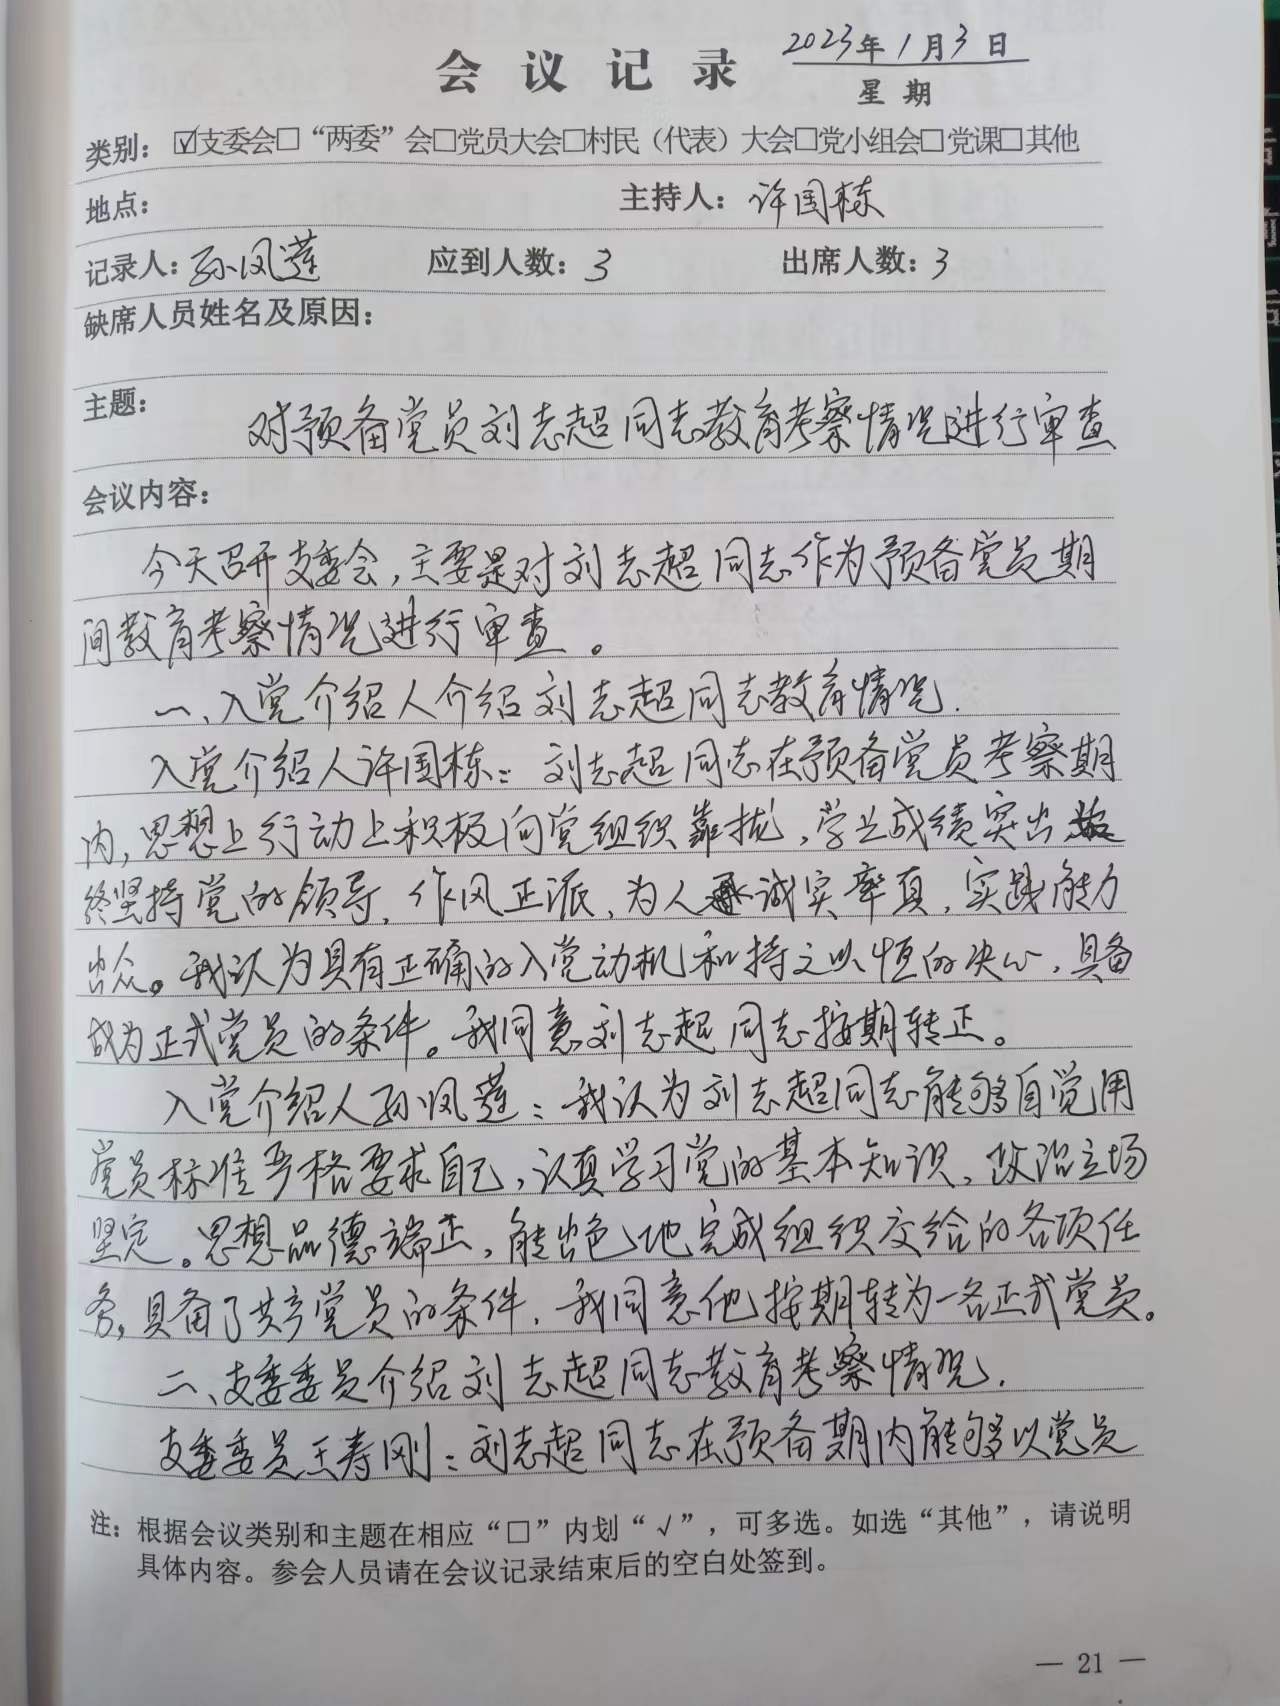 会议记录 2023年1月3日
星期
类别：☑支委会□“两委”会□党员大会□村民（代表）大会□党小组会□党课□其他
地点： 主持人：许国栋
记录人：孙凤莲 应到人数：3 出席人数：3
缺席人员姓名及原因：
主题：
对预备党员刘志超同志教育考察情况进行审查
会议内容：
今天召开支委会，主要是对刘志超同志作为预备党员期
间教育考察情况进行审查。
一、入党介绍人介绍刘志超同志教育情况.
入党介绍人许国栋：刘志超同志在预备党员考察期
内，思想上行动上积极向党组织靠拢，学业成绩突出始
终坚持党的领导，作风正派，为人诚实率真，实践能力
出众。我认为具有正确的入党动机和持之以恒的决心，具备
成为正式党员的条件。我同意刘志超同志按期转正。
入党介绍人孙凤莲：我认为刘志超同志能够自觉用
党员标准严格要求自己，认真学习党的基本知识，政治立场
坚定。思想品德端正，能出色地完成组织交给的各项任
务，具备了共产党员的条件，我同意他按期转为一名正式党员。
二、支委委员介绍刘志超同志教育考察情况.
支委委员王寿刚：刘志超同志在预备期内能够以党员
注：根据会议类别和主题在相应“□”内划“√”，可多选。如选“其他”，请说明
具体内容。参会人员请在会议记录结束后的空白处签到。
— 21 —